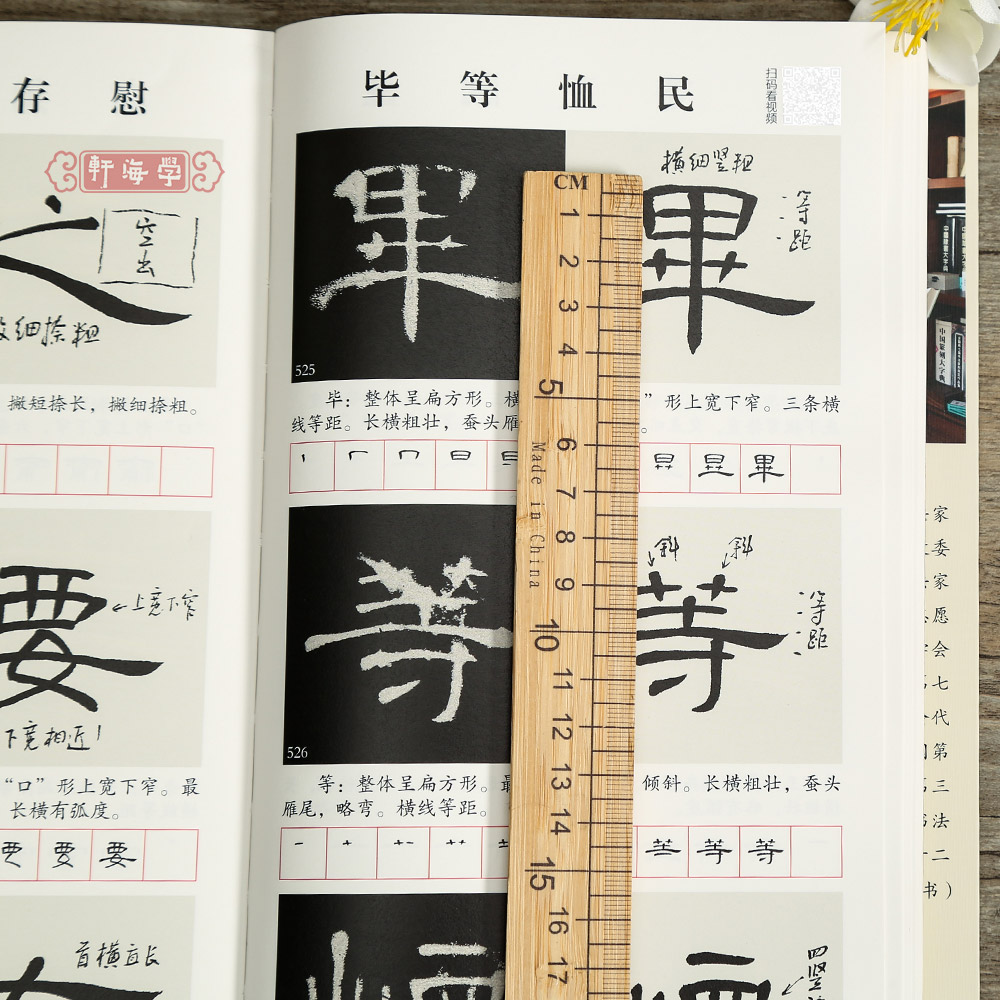 存 慰
軒海学
空出
细捺粗
撇短捺长，撇细捺粗。
要
上宽下窄
下宽相近
“口”形上宽下窄。最
长横有弧度。
要 要
首横立长
毕 等 恤 民
扫码看视频
畢
525
畢
横细竖粗
等距
毕：整体呈扁方形。横
”形上宽下窄。三条横
线等距。长横粗壮，蚕头雁
畢
等
526
等
斜 斜
等距
等：整体呈扁方形。最
倾斜。长横粗壮，蚕头
雁尾，略弯。横线等距。
等 等
四竖
CM
1
2
3
4
5
6
7
8
9
10
11
12
13
14
15
16
17
Made in China
中国篆刻大字典
家
委
家
愿
会
七
代
第
三
法
二
书）